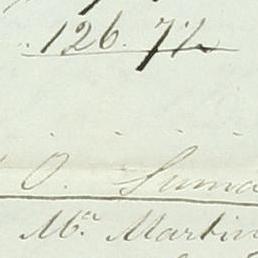 126.72
O. Suma
Mr. Martin